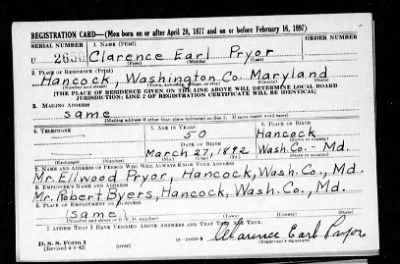 REGISTRATION CARD—(Men born on or after April 28, 1877 and on or before February 16, 1897)
SERIAL NUMBER 1. NAME (Print) ORDER NUMBER
U 2650 Clarence Earl Pryor
(First) (Middle) (Last)
2. PLACE OF RESIDENCE (Print)
Hancock, Washington Co. Maryland
(Number and street) (Town) (County) (State)
[THE PLACE OF RESIDENCE GIVEN ON THE LINE ABOVE WILL DETERMINE LOCAL BOARD
JURISDICTION; LINE 2 OF REGISTRATION CERTIFICATE WILL BE IDENTICAL]
3. MAILING ADDRESS
same
[Mailing address if other than place indicated on line 2. If same insert word same]
4. TELEPHONE 5. AGE IN YEARS 6. PLACE OF BIRTH
50 Hancock
DATE OF BIRTH (Town or county)
March 27, 1892 Wash. Co - Md.
(Exchange) (Number) (Mo.) (Day) (Yr.) (State or country)
7. NAME AND ADDRESS OF PERSON WHO WILL ALWAYS KNOW YOUR ADDRESS
Mr. Ellwood Pryor, Hancock, Wash. Co., Md.
8. EMPLOYER'S NAME AND ADDRESS
Mr. Robert Byers, Hancock, Wash. Co., Md.
9. PLACE OF EMPLOYMENT OR BUSINESS
(same)
(Number and street or R. F. D. number) (Town) (County) (State)
I AFFIRM THAT I HAVE VERIFIED ABOVE ANSWERS AND THAT THEY ARE TRUE.
D. S. S. Form 1
(Revised 4-1-42) (over) Clarence Earl Pryor
(Registrant's signature)